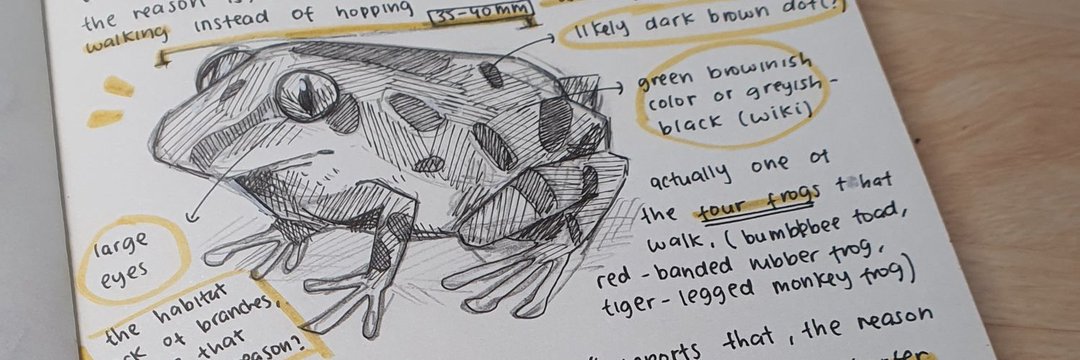 the reason
walking instead of hopping
35-40mm
likely dark brown dot(?)
green browinish
color or greyish-
black (wiki)
large
eyes
the habitat
of branches,
that
eason?
actually one of
the four frogs that
walk. (bumblebee toad,
red-banded rubber frog,
tiger-legged monkey frog)
that, the reason